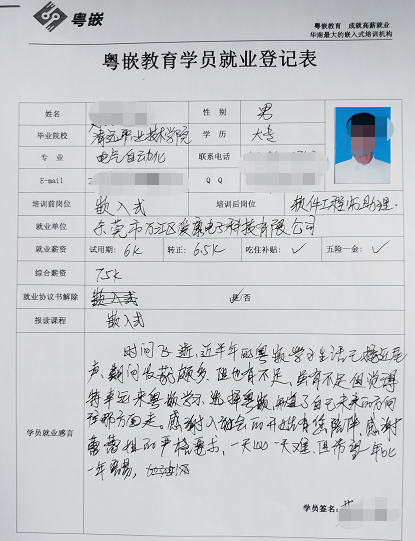 粤嵌
粤嵌教育 成就高薪就业
华南最大的嵌入式培训机构
粤嵌教育学员就业登记表
姓名 性 别 男
毕业院校 清远职业技术学院 学 历 大专
专 业 电气自动化 联系电话
E-mail Q Q
培训前岗位 嵌入式 培训后岗位 软件工程师助理
就业单位 东莞市万江区 电子科技有限公司
就业薪资 试用期: 6K 转正: 6.5K 吃住补贴: ✓ 五险一金: ✓
综合薪资 7.5K
就业协议书解除 嵌入式 是/否
报读课程 嵌入式
学员就业感言
时间飞逝,近半年的粤嵌学习生活已接近尾
声,期间收获颇多,但也有不足,虽有不足但觉得
来粤嵌学习,选择粤嵌,知道了自己未来的方向
方面走。感谢 的 感谢
姐的严格要求,一天 一天难,但希望一年比
一年 易,加油
学员签名: